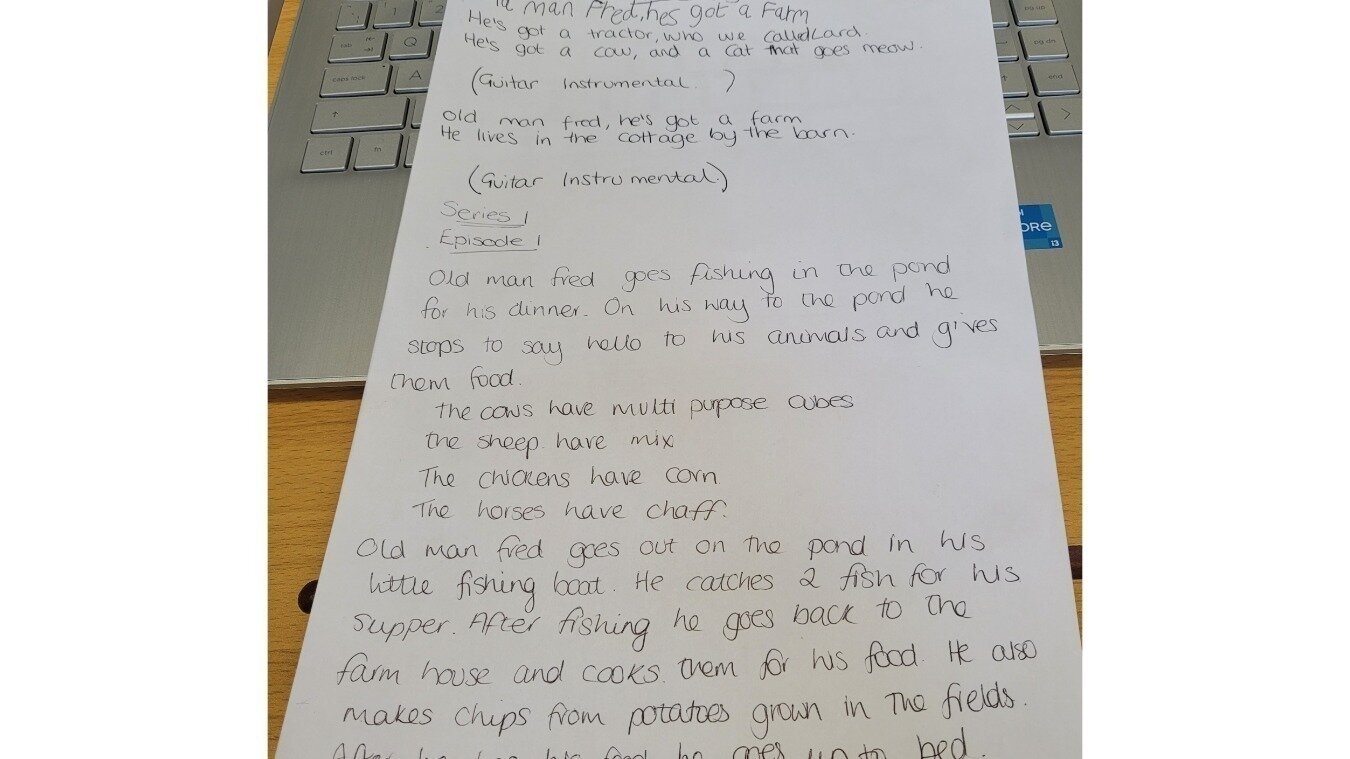 man Fred, hes got a Farm
He's got a tractor, who we called Lard.
He's got a cow, and a cat that goes meow.
(Guitar Instrumental. )
Old man fred, he's got a farm
He lives in the cottage by the barn.
(Guitar Instrumental.)
Series 1
Episode 1
Old man fred goes fishing in the pond
for his dinner. On his way to the pond he
stops to say hello to his animals and gives
them food.
The cows have multi purpose cubes
the sheep have mix
The chickens have corn
The horses have chaff.
Old man fred goes out on the pond in his
little fishing boat. He catches 2 fish for his
supper. After fishing he goes back to the
farm house and cooks them for his food. He also
makes chips from potatoes grown in the fields.
After he has his food he goes up to bed.
1
2
pg up
tab
Q
pg dn
caps lock
A
end
ctrl
fn
i3